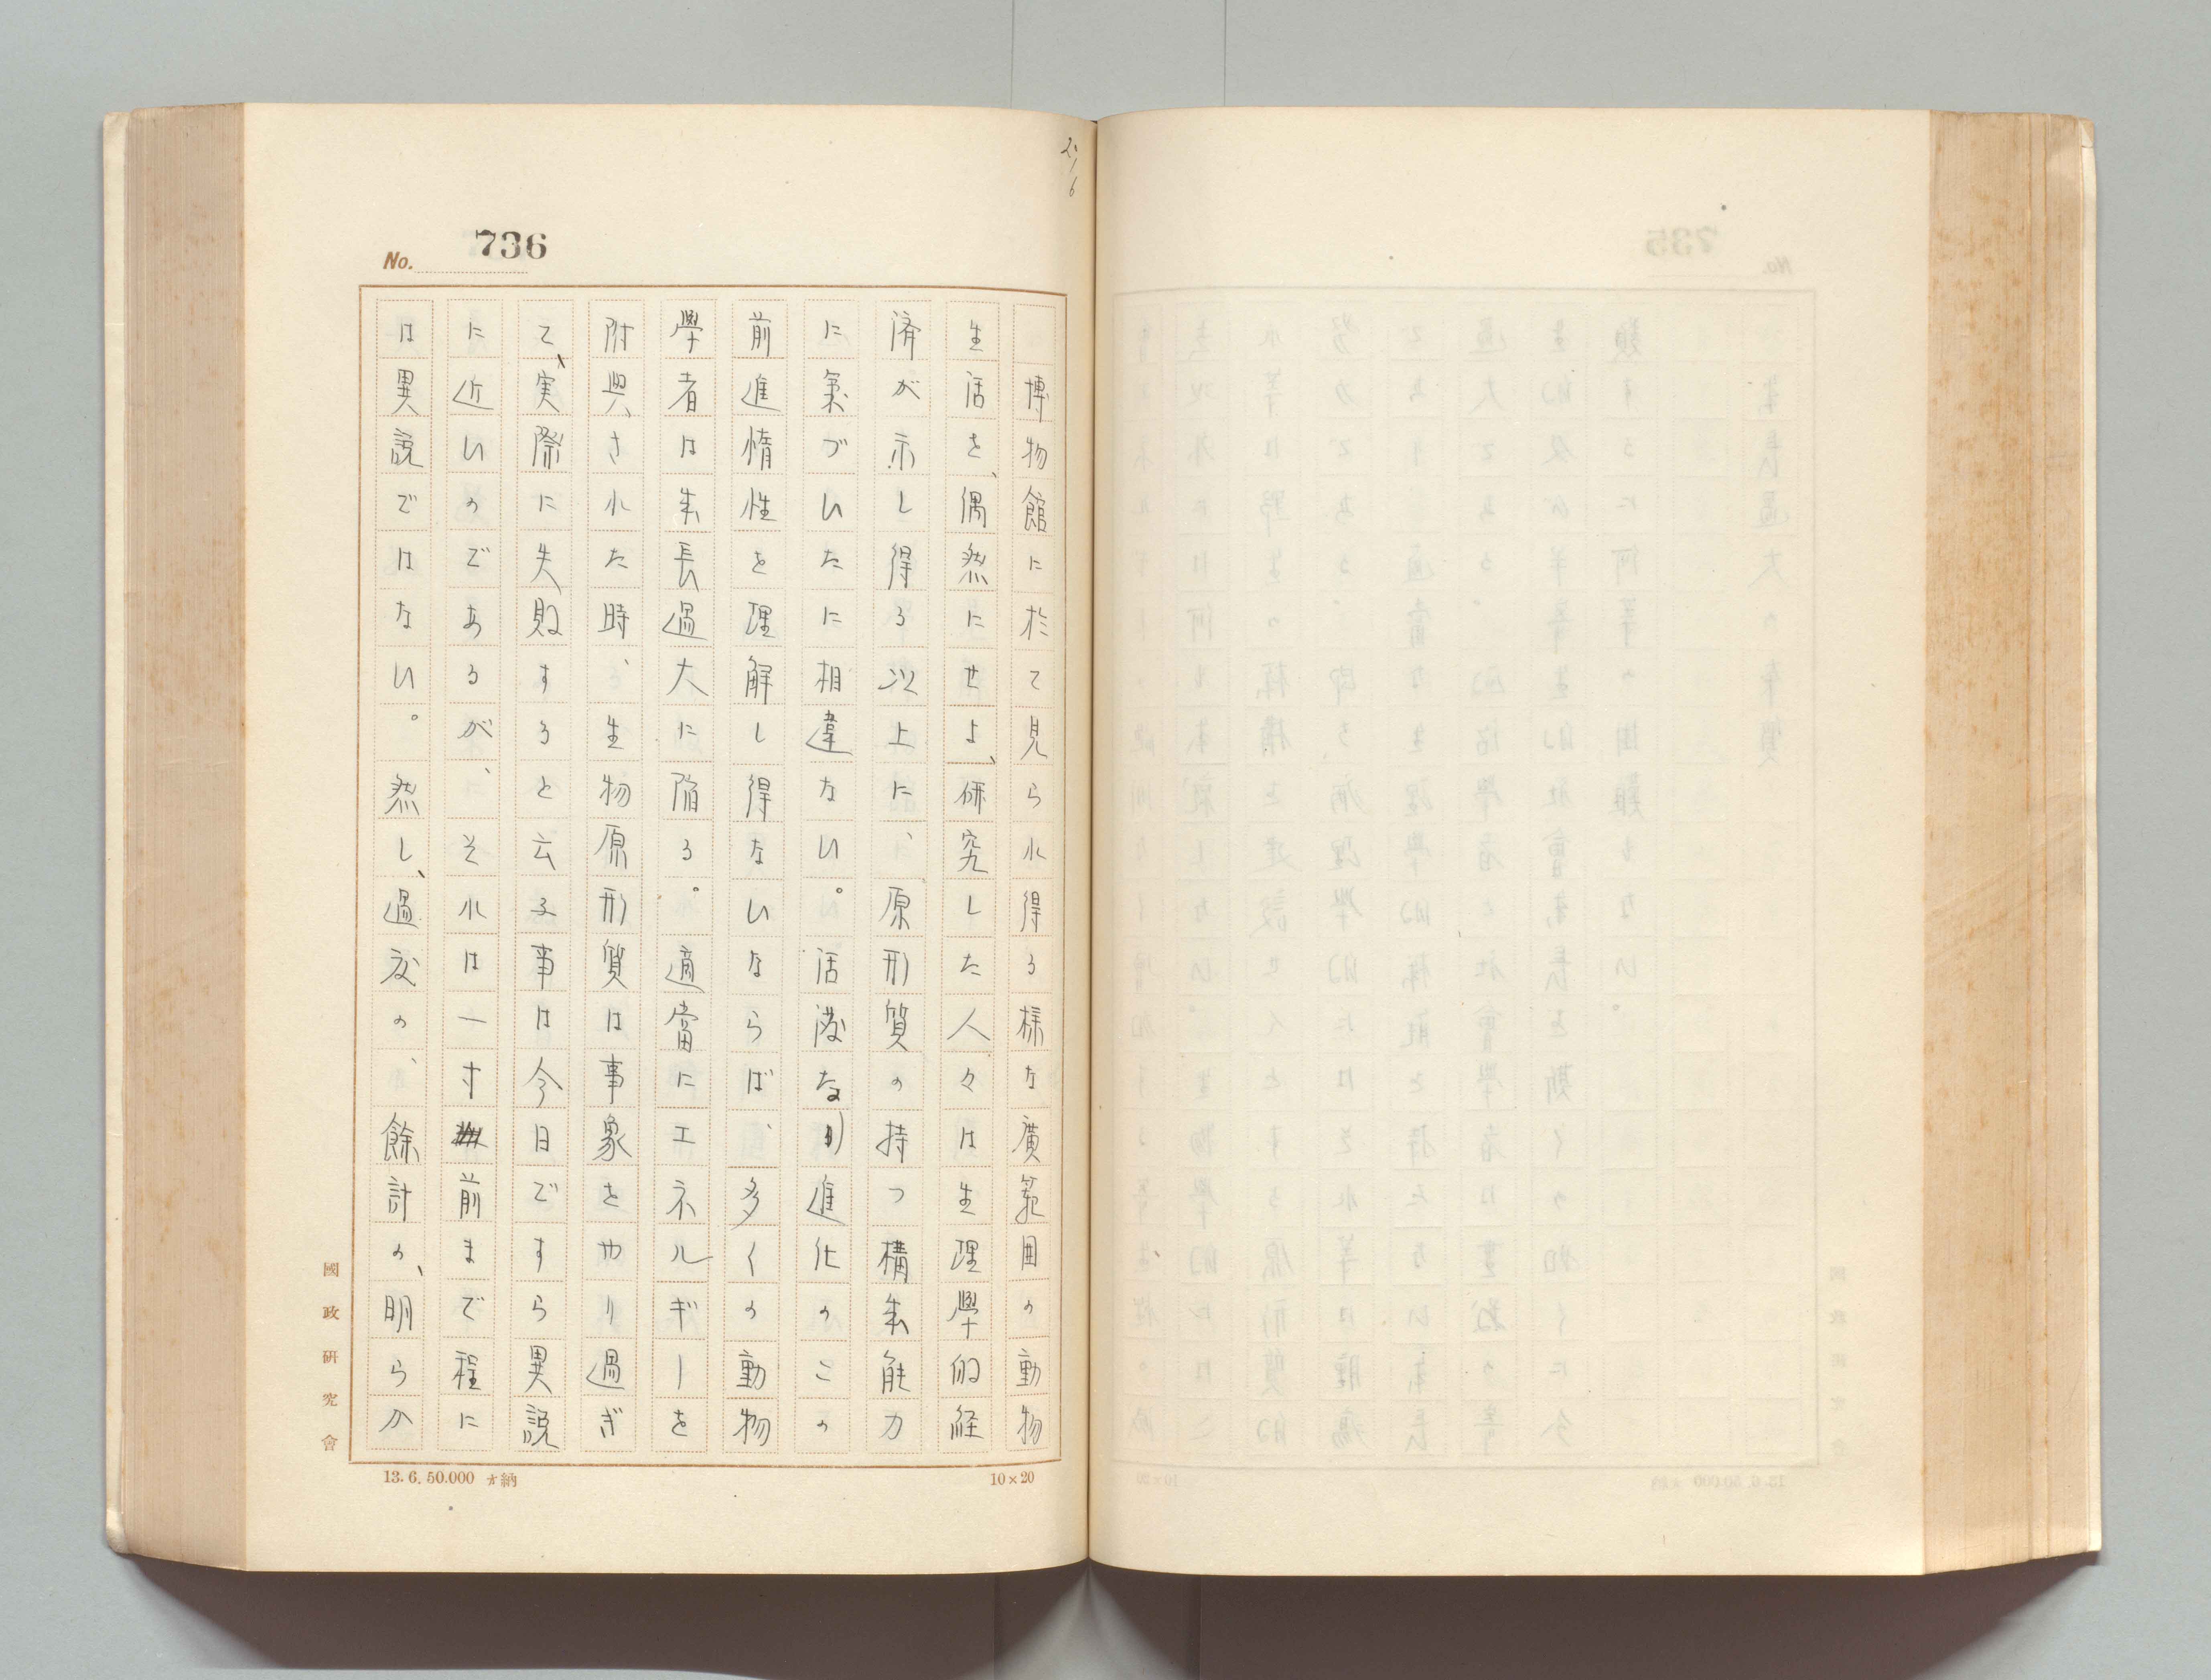 25/6
No. 736
博物館に於て見られ得る様な廣範囲の動物
生活を、偶然にせよ、研究した人々は生理學的経
済が示し得る以上に、原形質の持つ構成能力
に氣づいたに相違ない。活潑な進化のこの
前進惰性を理解し得ないならば、多くの動物
學者は生長過大に陥る。適當にエネルギーを
附與された時、生物原形質は事象をやり過ぎ
て、実際に失敗すると云ふ事は今日ですら異説
に近いのであるが、それは一寸前まで程に
は異説ではない。然し、過度の、餘計の、明らか
國政研究會
13.6.50.000 納
10×20